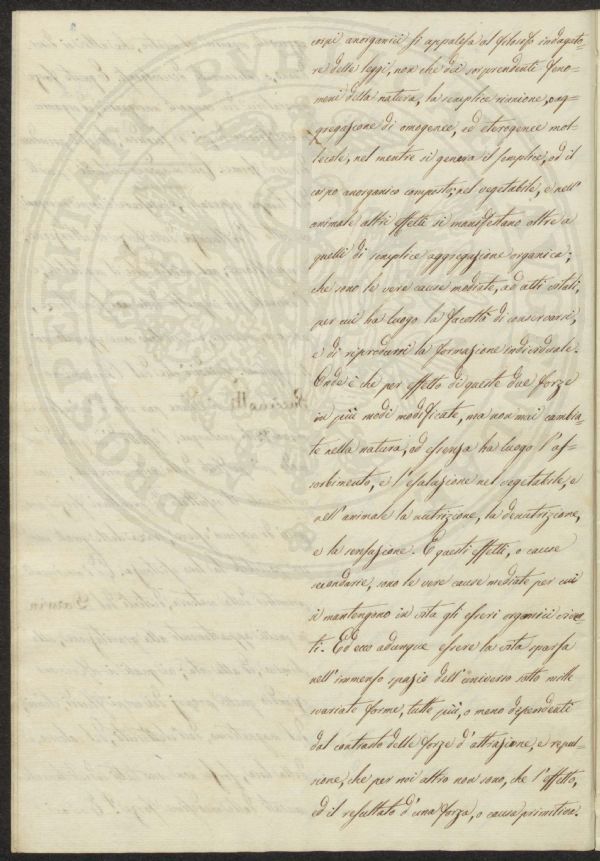 corpi anorganici si appalesa al filosofo indagato-
re delle leggi, non che dei sorprendenti feno-
meni della natura, la semplice riunione, o ag-
gregazione di omogenee, ed eterogenee mol-
lecole, nel mentre si genera il semplice, od il
corpo anorganico composto; nel vegetabile, e nell'
animale altri effetti si manifestano oltre a
quelli di semplice aggregazione organica;
che sono le vere cause mediate, ad atti vitali,
per cui ha luogo la facoltà di conservarsi,
e di riprodursi la formazione individuale.
Onde è che per effetto di queste due forze
in più modi modificate, ma non mai cambia-
te nella natura, od essenza ha luogo l'as-
sorbimento, e l'esalazione nel vegetabile, e
nell'animale la nutrizione, la denutrizione,
e la sensazione. E questi effetti, o cause
secondarie, sono le vere cause mediate per cui
si mantengono in vita gli esseri organici viven-
ti. Ed ecco adunque essere la vita sparsa
nell'immenso spazio dell'universo sotto mille
svariate forme, tutte più, o meno dependenti
dal contrasto delle forze d'attrazione, e repul-
sione, che per noi altro non sono, che l'effetto,
ed il resultato d'una forza, o causa primitiva.
PROSPERITATI PUB